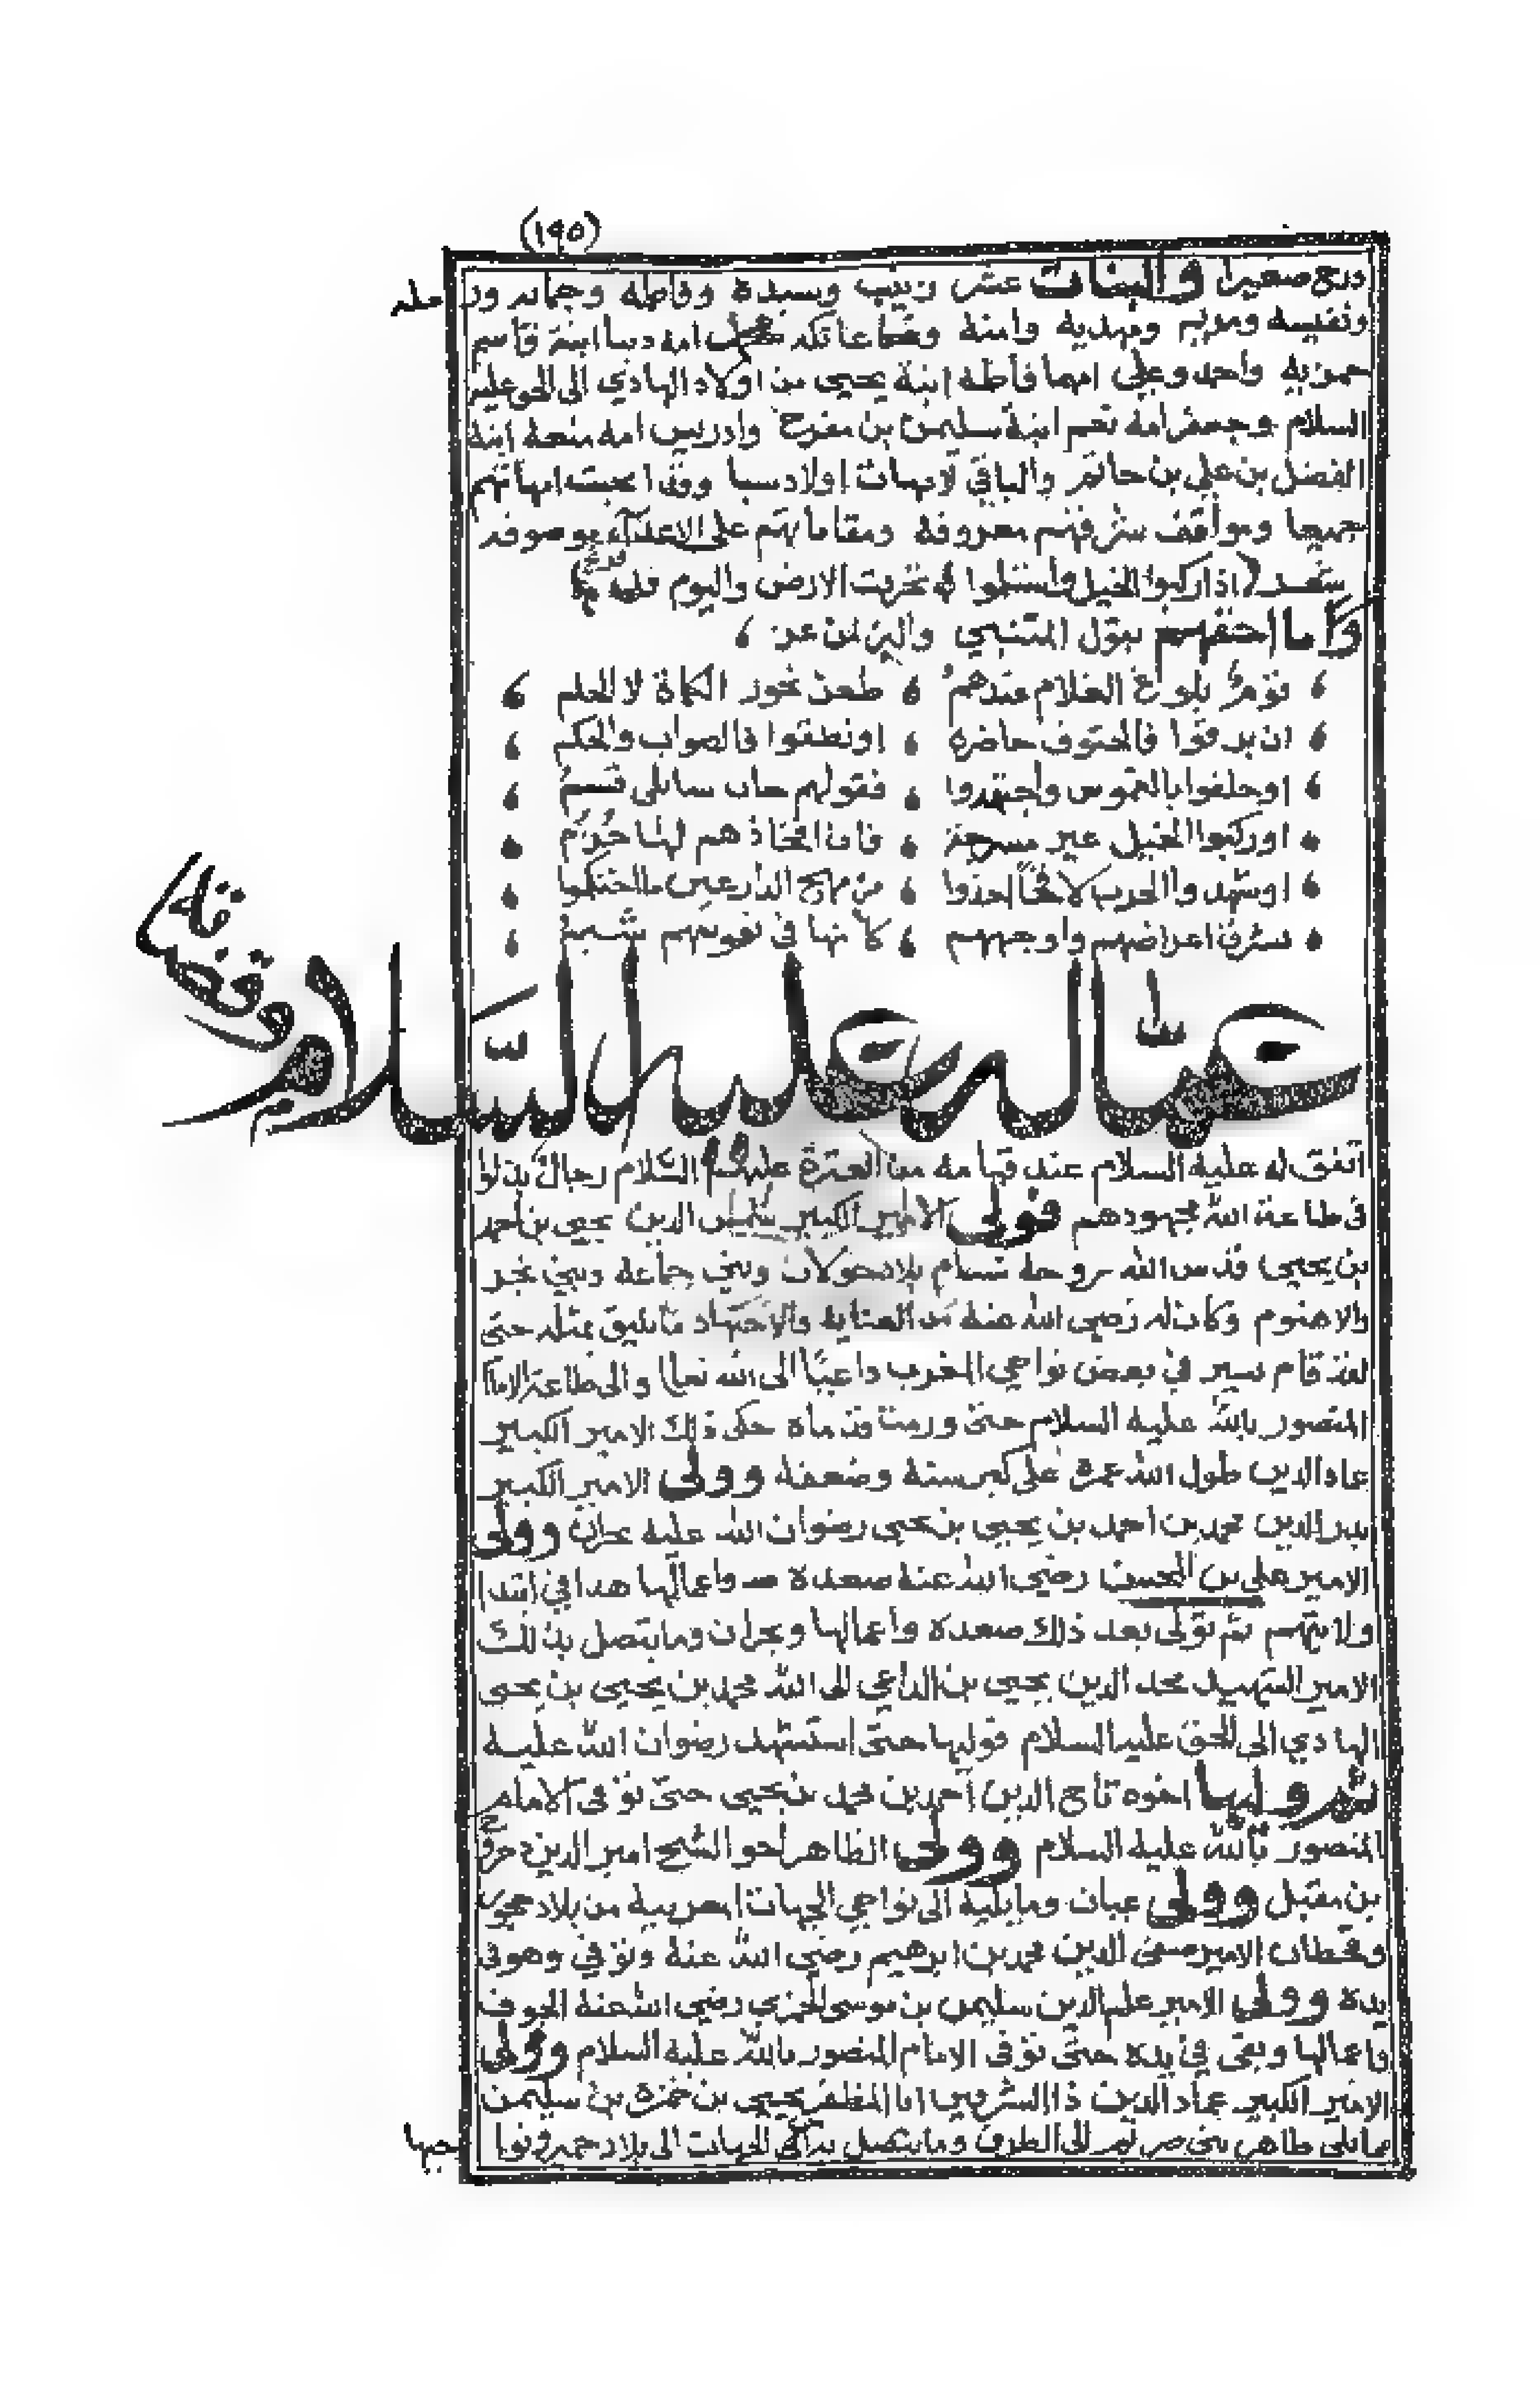 (١٩٥)
درج صغيرا والبنات عشر زينب وسيدة وفاطمة وجمانه ورملة
ونفيسه ومريم ومهدية وامنة وعاتكه امه دنيا ابنة قاسم
حمزيه واحمد وعلي امهما فاطمة ابنة يحيى من اولاد الهادي الى الحق عليه
السلام وجعفر امه نعم ابنة سليمن بن مفرح وادريس امه منعة ابنة
الفضل بن علي بن حاتم والباقي لامهات اولاد سبا وقد انجبت امهاتهم
جميعا ومواقف شرفهم معروفة ومقاماتهم على الاعداء موصوفه
اذا ركبوا الخيل واستلأموا تحرقت الارض واليوم قر
وما احقهم بقول المتنبي
قوم بلوغ الغلام عندهم طعن نحور الكماة لا الحلم
ان برقوا فالحتوف حاضرة او نطقوا فالصواب والحكم
او حلفوا بالغموس واجتهدوا فقولهم خاب سائلي قسم
او ركبوا الخيل غير مسرجة فان افخاذهم لها حزم
او شهدوا الحرب لاقحا اخذوا من مهج الدارعين ما احتكموا
تشرق اعراضهم واوجههم كأنها في نفوسهم شيم
عماله عليه السلام وقضاته
اتفق له عليه السلام عند قيامه من العترة عليهم السلام رجال بذلوا
في طاعة الله مجهودهم فولى الامير الكبير شمس الدين يحيى بن احمد
بن يحيى قدس الله روحه شام بلاد خولان وبني جماعة وبني بحر
والاهنوم وكان له رضي الله عنه من العناية والاجتهاد ما يليق بمثله حتى
لقد قام يسير في بعض نواحي المغرب داعيا الى الله تعالى والى طاعة الامام
المنصور بالله عليه السلام حتى ورمت قدماه حكى ذلك الامير الكبير
عماد الدين طول الله عمره على كبر سنه وضعفه وولى الامير الكبير
بدر الدين محمد بن احمد بن يحيى بن يحيى رضوان الله عليه نجران وولى
الامير علي بن المحسن رضي الله عنه صعدة واعمالها هذا في ابتدا
ولايتهم ثم تولى بعد ذلك صعدة واعمالها ونجران وما يتصل بذلك
الامير الشهيد مجد الدين يحيى بن الداعي الى الله محمد بن يحيى بن يحيى
الهادي الى الحق عليه السلام فوليها حتى استشهد رضوان الله عليه
ثم وليها اخوه تاج الدين احمد بن محمد بن يحيى حتى توفي الامام
المنصور بالله عليه السلام وولى الظاهر الشيخ امير الدين دحروج
بن مقبل وولى عيان وما يليه الى نواحي الجهات المغربية من بلاد حجور
وقحطان الامير صفي الدين محمد بن ابرهيم رضي الله عنه وتوفي وهو في
يده وولى الامير علم الدين سليمن بن موسى الحمزي رضي الله عنه الجوف
واعمالها وبقي في يده حتى توفي الامام المنصور بالله عليه السلام وولى
الامير الكبير عماد الدين ذا الشرفين ابا المظفر يحيى بن حمزة بن سليمن
ما يلي ظاهر بني صريم الى الطرف وما يتصل بذلك الجهات الى بلاد حمير ونواحيها